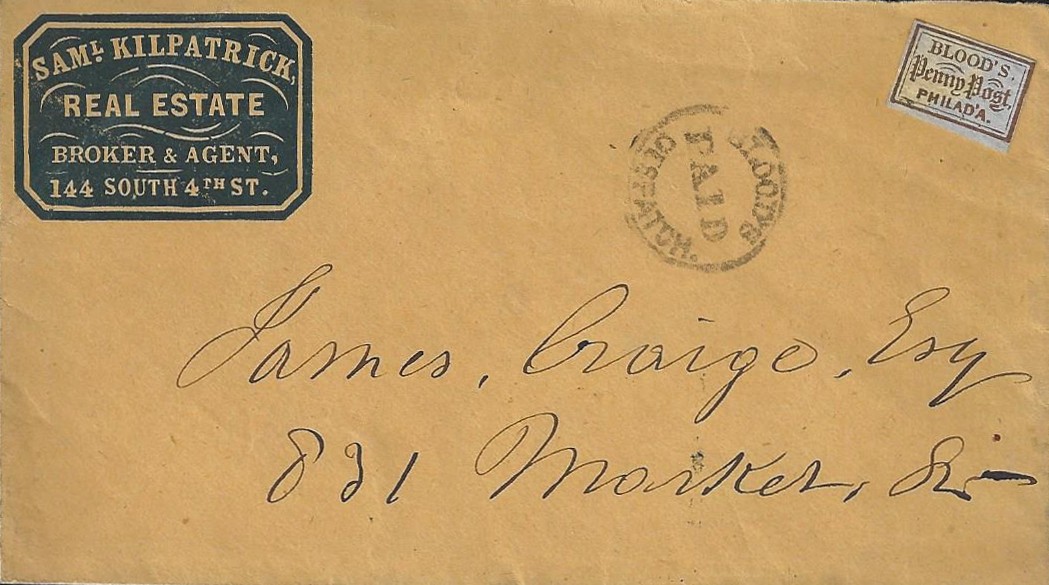 SAML. KILPATRICK,
REAL ESTATE
BROKER & AGENT,
144 SOUTH 4TH ST.
BLOOD'S
Penny Post,
PHILAD'A.
BLOOD'S
PAID
DESPATCH.
James, Craige, Esq
831 Market, St